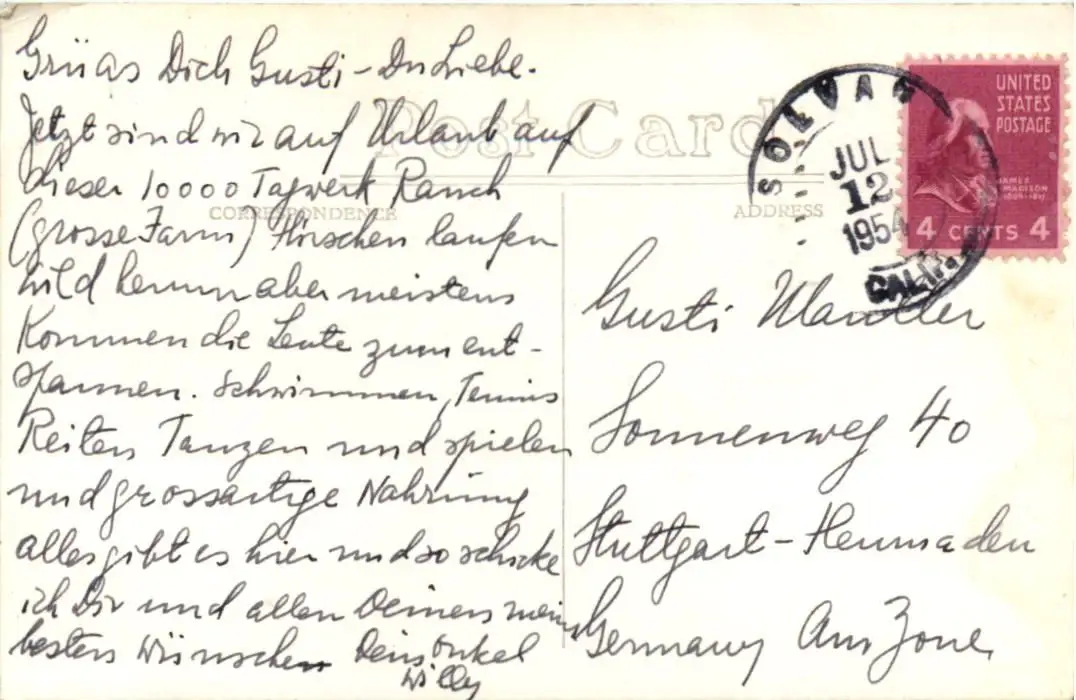 Grüas Dich Gusti - Du Liebe.
Jetzt sind wir auf Urlaub auf
dieser 10000 Tagwerk Ranch
(grosse Farm) Hirschen laufen
wild herum aber meistens
Kommen die Leute zum ent-
spannen. Schwimmen, Tennis
Reiten Tanzen und spielen
und grossartige Nahrung
alles gibt es hier und so schicke
ich Dir und allen Deinen meine
besten Wünsche Dein Onkel
Willy
Post Card
CORRESPONDENCE
ADDRESS
SOLVANG
JUL
12
1954
CALIF.
UNITED
STATES
POSTAGE
JAMES
MADISON
4 CENTS 4
Gusti
Sonnenweg 40
Stuttgart-Heumaden
Germany Am Zone